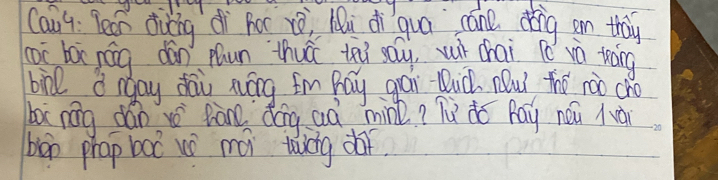 Câu 4: Trên đường đi học về, khi đi qua cánh đồng em thấy
các bác nông dân phun thuốc trừ sâu, vứt chai lọ và tráng
bình ở ngay đầu ruộng Em hãy giải thích như thế nào cho
bác nông dân về hành động của mình? Từ đó hãy nêu 1 vài
biện pháp bảo vệ môi trường đất.